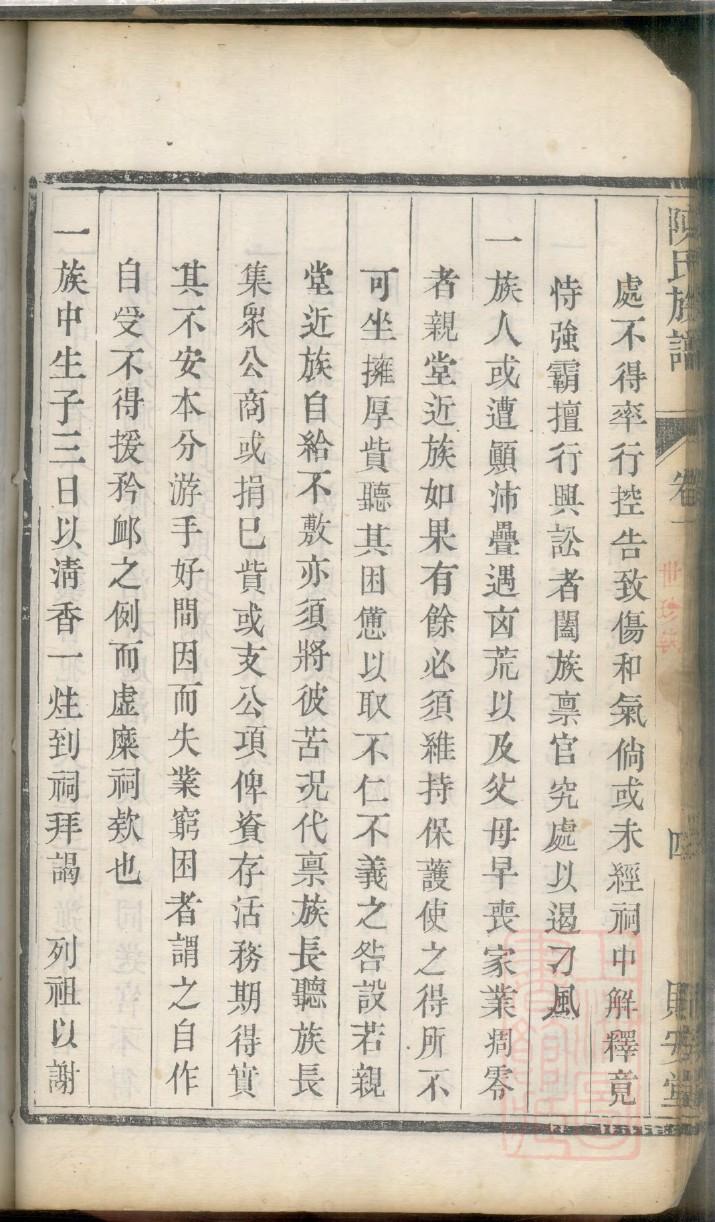 陳氏族譜
卷一
四
處不得率行控告致傷和氣倘或未經祠中解釋竟
恃強霸擅行興訟者闔族禀官究處以遏刁風
一族人或遭顚沛疊遇凶荒以及父母早喪家業凋零
者親堂近族如果有餘必須維持保護使之得所不
可坐擁厚貲聽其困憊以取不仁不義之咎設若親
堂近族自給不敷亦須將彼苦况代禀族長聽族長
集衆公商或捐已貲或支公項俾資存活務期得實
其不安本分游手好閒因而失業窮困者謂之自作
自受不得援矜卹之例而虛糜祠欵也
一族中生子三日以淸香一炷到祠拜謁 列祖以謝